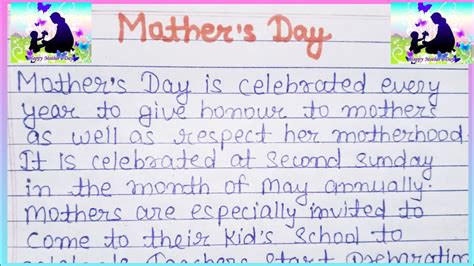 Mother's Day
Mother's Day is celebrated every
year to give honour to mothers
as well as respect her motherhood
It is celebrated at second sunday
in the month of May annually.
Mothers are especially invited to
come to their kid's school to
Teachers start Preparation